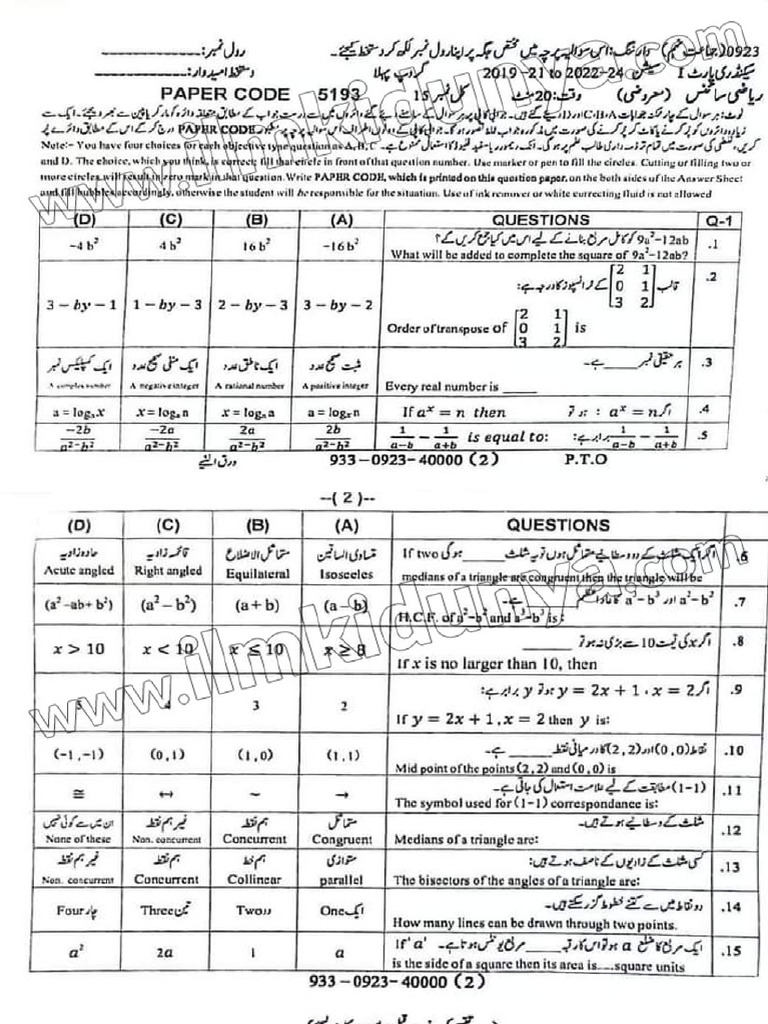 رول نمبر: ____________ 0923 (جماعت نہم) وارننگ: اس سوالیہ پرچہ میں مختص جگہ پر اپنا رول نمبر لکھ کر دستخط کیجئے۔
دستخط امیدوار: ____________ گروپ پہلا سیشن 2019-21 to 2022-24 سیکنڈری پارٹ I
PAPER CODE 5193 کل نمبر 15 وقت: 20 منٹ (معروضی) ریاضی سائنس
Note:- You have four choices for each objective type question as A, B, C
and D. The choice, which you think, is correct; fill that circle in front of that question number. Use marker or pen to fill the circles. Cutting or filling two or
more circles will result in zero mark in that question. Write PAPER CODE, which is printed on this question paper, on the both sides of the Answer Sheet
and fill bubbles accordingly, otherwise the student will be responsible for the situation. Use of ink remover or white correcting fluid is not allowed
(D) (C) (B) (A) QUESTIONS Q-1
−4 b² 4 b² 16 b² −16 b² 9a²−12ab کو کامل مربع بنانے کے لیے اس میں کیا جمع کریں گے؟ .1
What will be added to complete the square of 9a²−12ab?
3 − by − 1 1 − by − 3 2 − by − 3 3 − by − 2 قالب [2 1; 0 1; 3 2] کے ٹرانسپوز کا درجہ ہے: .2
Order of transpose of [2 1; 0 1; 3 2] is
ایک کمپلیکس نمبر ایک منفی صحیح عدد ایک ناطق عدد مثبت صحیح عدد ہر حقیقی نمبر _____ ہے۔ .3
A complex number A negative integer A rational number A positive integer Every real number is _____
a = logₙx x = logₐn x = logₙa a = logₓn If aˣ = n then اگر aˣ = n ہو تو : .4
−2b/(a²−b²) −2a/(a²−b²) 2a/(a²−b²) 2b/(a²−b²) 1/(a−b) − 1/(a+b) is equal to: 1/(a−b) − 1/(a+b) برابر ہے: .5
ورق الٹیے 933 – 0923 – 40000 (2) P.T.O
--( 2 )--
(D) (C) (B) (A) QUESTIONS
حادہ زاویہ قائمہ زاویہ متماثل الاضلاع متساوی الساقین اگر ایک مثلث کے دو وسطانیے متماثل ہوں تو یہ مثلث _____ ہوگی If two .6
Acute angled Right angled Equilateral Isosceles medians of a triangle are congruent then the triangle will be
(a²−ab+b²) (a²−b²) (a+b) (a−b) a²−b² اور a³−b³ کا عاد اعظم _____ ہے۔ .7
H.C.F. of a²−b² and a³−b³ is:
x > 10 x < 10 x ≤ 10 x ≥ 8 اگر x کی قیمت 10 سے بڑی نہ ہو تو _____ .8
If x is no larger than 10, then
5 4 3 2 اگر y = 2x + 1 ، x = 2 ہو تو y برابر ہے: .9
If y = 2x + 1, x = 2 then y is:
(−1,−1) (0,1) (1,0) (1,1) نقاط (0,0) اور (2,2) کا درمیانی نقطہ _____ ہے۔ .10
Mid point of the points (2,2) and (0,0) is
≅ ↔ ~ → (1−1) مطابقت کے لیے علامت استعمال کی جاتی ہے۔ .11
The symbol used for (1−1) correspondence is:
ان میں سے کوئی نہیں غیر ہم نقطہ ہم نقطہ متماثل مثلث کے وسطانیے ہوتے ہیں۔ .12
None of these Non. concurrent Concurrent Congruent Medians of a triangle are:
غیر ہم نقطہ ہم نقطہ ہم خط متوازی کسی مثلث کے زاویوں کے ناصف ہوتے ہیں: .13
Non. concurrent Concurrent Collinear parallel The bisectors of the angles of a triangle are:
Four چار Three تین Two دو One ایک دو نقاط میں سے کتنے خطوط گزر سکتے ہیں۔ .14
How many lines can be drawn through two points.
a² 2a 1 a ایک مربع کا ضلع a ہو تو اس کا رقبہ _____ مربع یونٹس ہوتا ہے۔ If 'a' .15
is the side of a square then its area is.....square units
933 – 0923– 40000 (2)
www.ilmkidunya.com
www.ilmkidunya.com